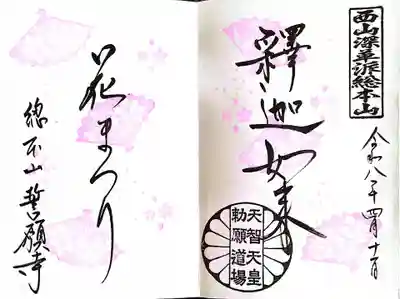 西山深草派総本山
令和八年四月十一日
釋迦如来
天智天皇
勅願道場
花まつり
總本山 誓願寺